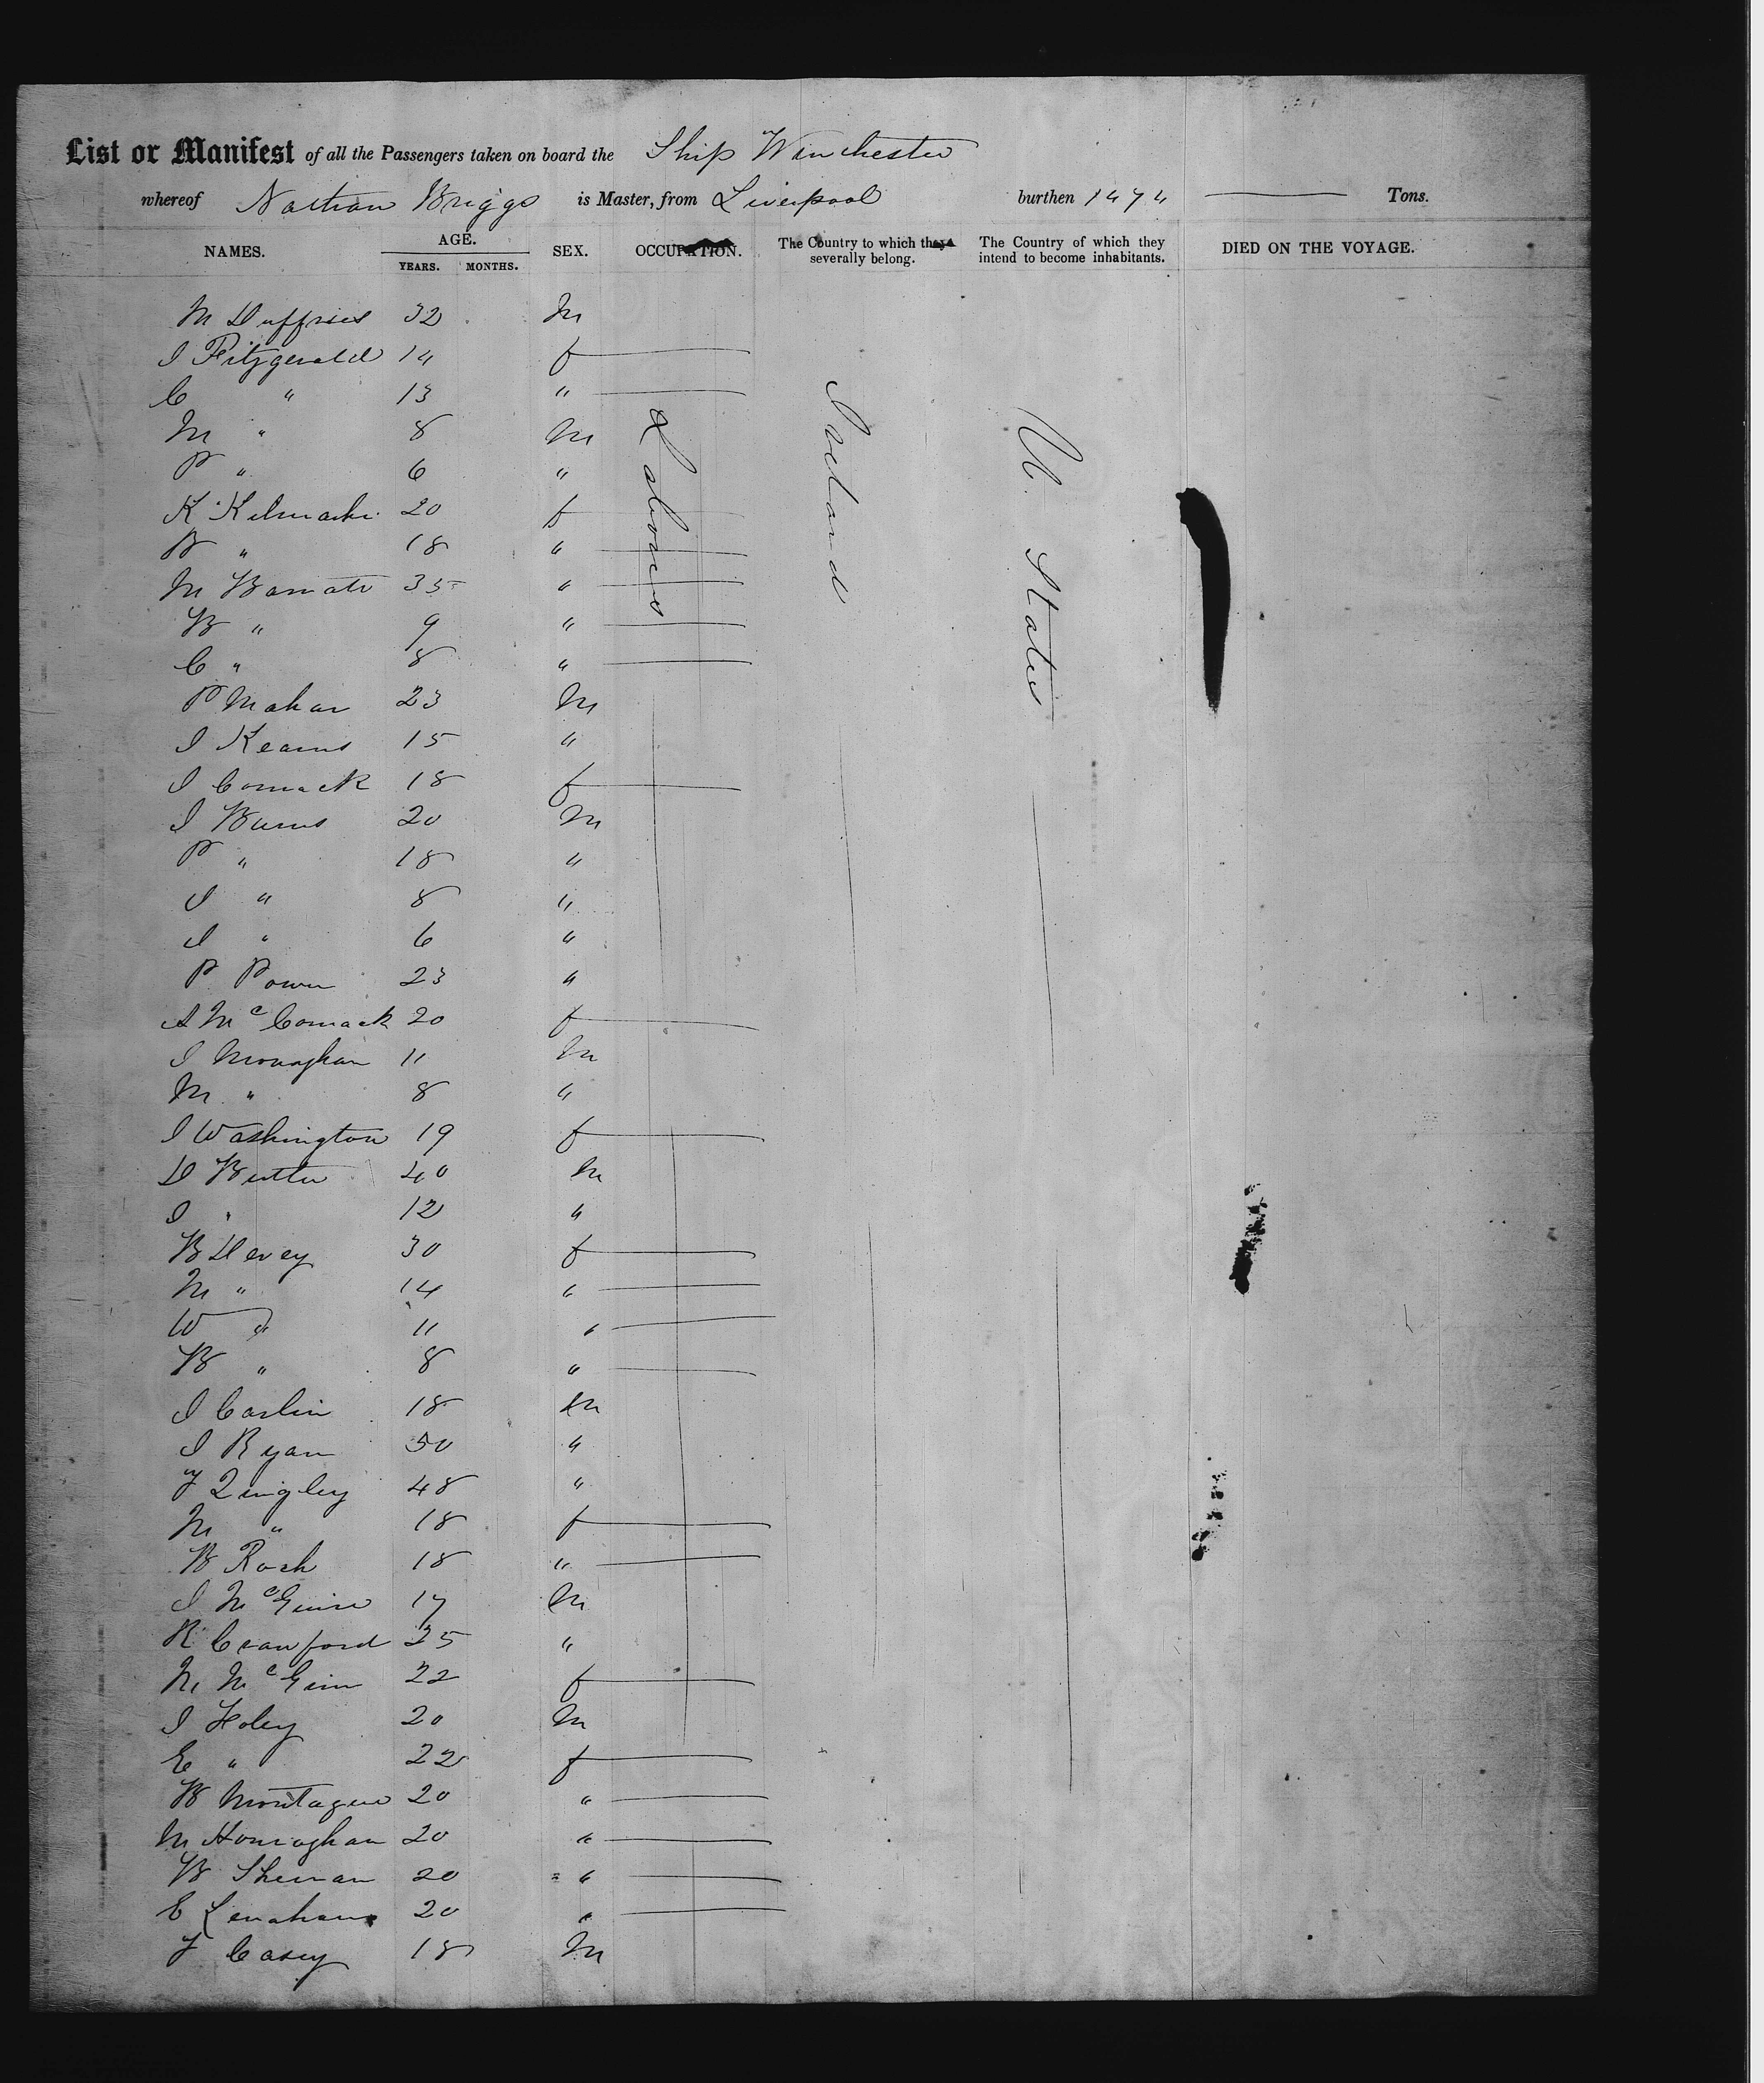 List or Manifest of all the Passengers taken on board the Ship Winchester
whereof Nathan Briggs is Master, from Liverpool burthen 1474 Tons.
NAMES. AGE. YEARS. MONTHS. SEX. OCCUPATION. The Country to which they severally belong. The Country of which they intend to become inhabitants. DIED ON THE VOYAGE.
Labours
Ireland
U. States
M 32 M
I Fitzgerald 14 f
C " 13 "
M " 8 M
P " 6 "
K 20 f
B " 18 "
M 35 "
B " 9 "
C " 8 "
P Mahar 23 M
I Kearns 15 "
I Comack 18 f
I Burns 20 M
P " 18 "
I " 8 "
I " 6 "
P Power 23 "
A McComack 20 f
I Monaghan 11 M
M " 8 "
I Washington 19 f
D Butler 40 M
I " 12 "
B Devey 30 f
M " 14 "
W " 11 "
B " 8 "
I Carlin 18 M
I Ryan 50 "
T Qingley 48 "
M " 18 f
B Rach 18 "
I McGuire 17 M
R Crawford 25 "
M McGinn 22 f
I Foley 20 M
E " 22 f
B Montague 20 "
M 20 "
B Shernan 20 "
E Lenahan 20 "
T Casey 18 M